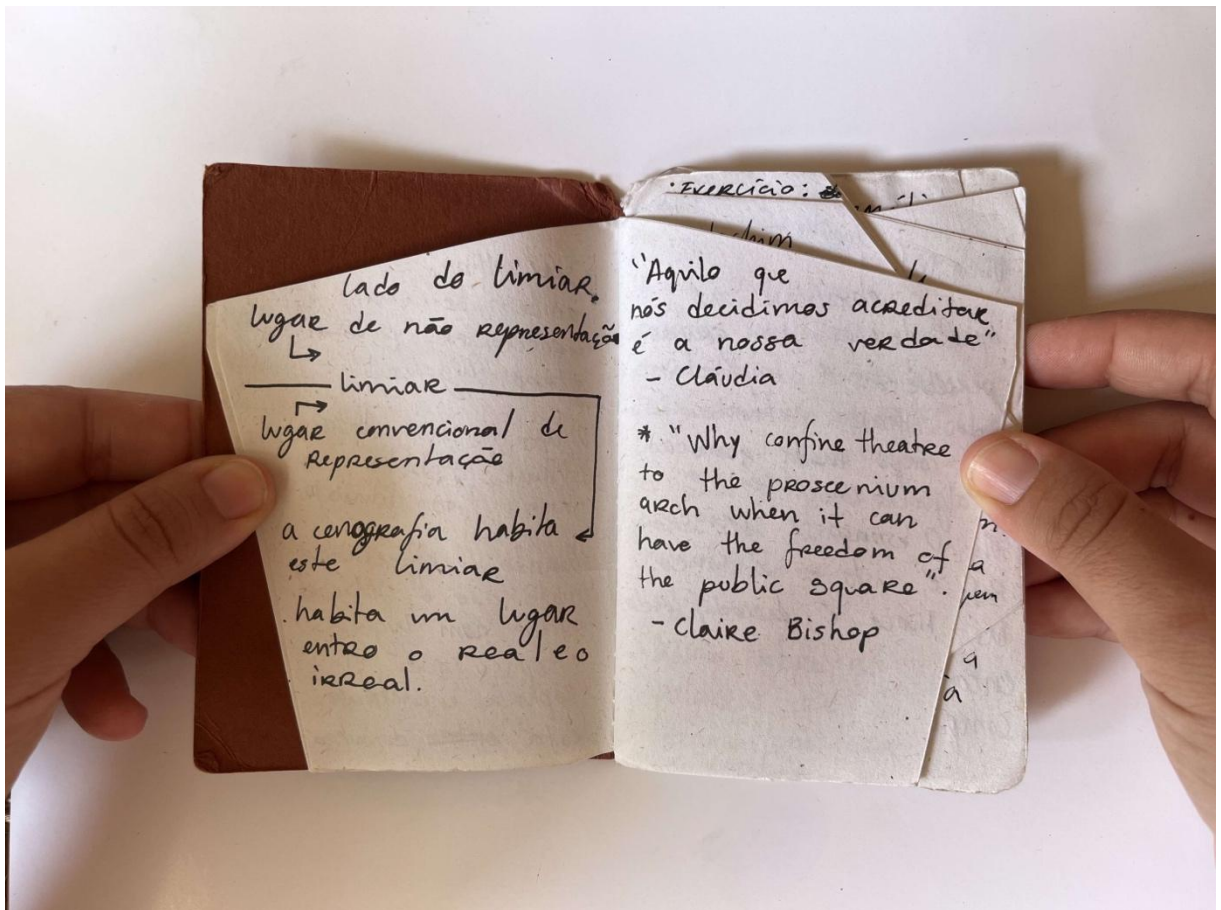 lado do limiar.
lugar de não representação
↳
limiar
↱
lugar convencional de
representação
a cenografia habita
este limiar
habita um lugar
entre o real e o
irreal.
• Exercício:
"Aquilo que
nós decidimos acreditar
é a nossa verdade"
- Cláudia
* "Why confine theatre
to the proscenium
arch when it can
have the freedom of
the public square".
- Claire Bishop